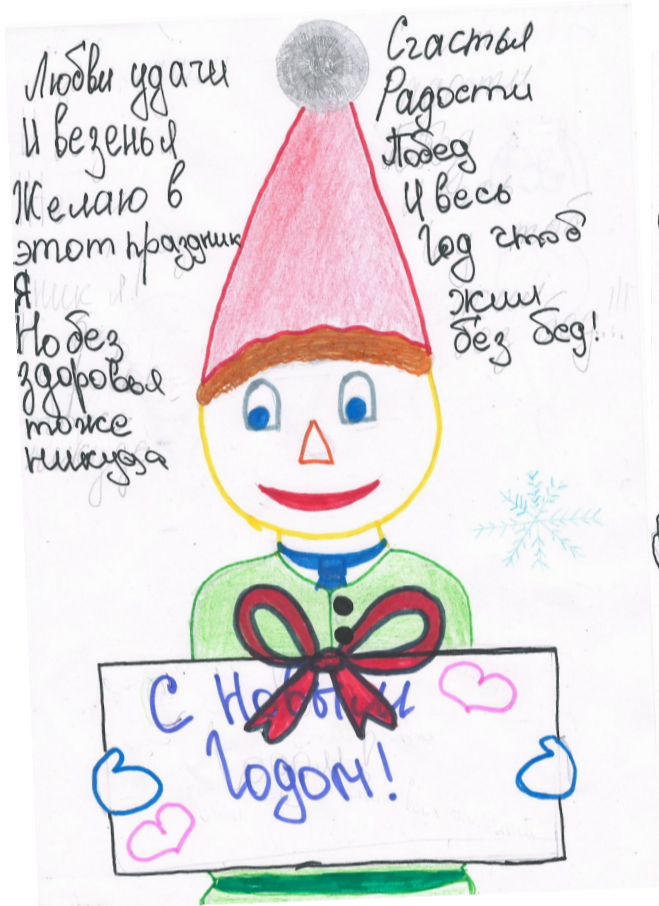 Любви удачи
И везенья
Желаю в
этот праздник
Я
Но без
здоровья
тоже
никуда
Счастья
Радости
Побед
И весь
Год чтоб
жил
без бед!
С Новым
Годом!